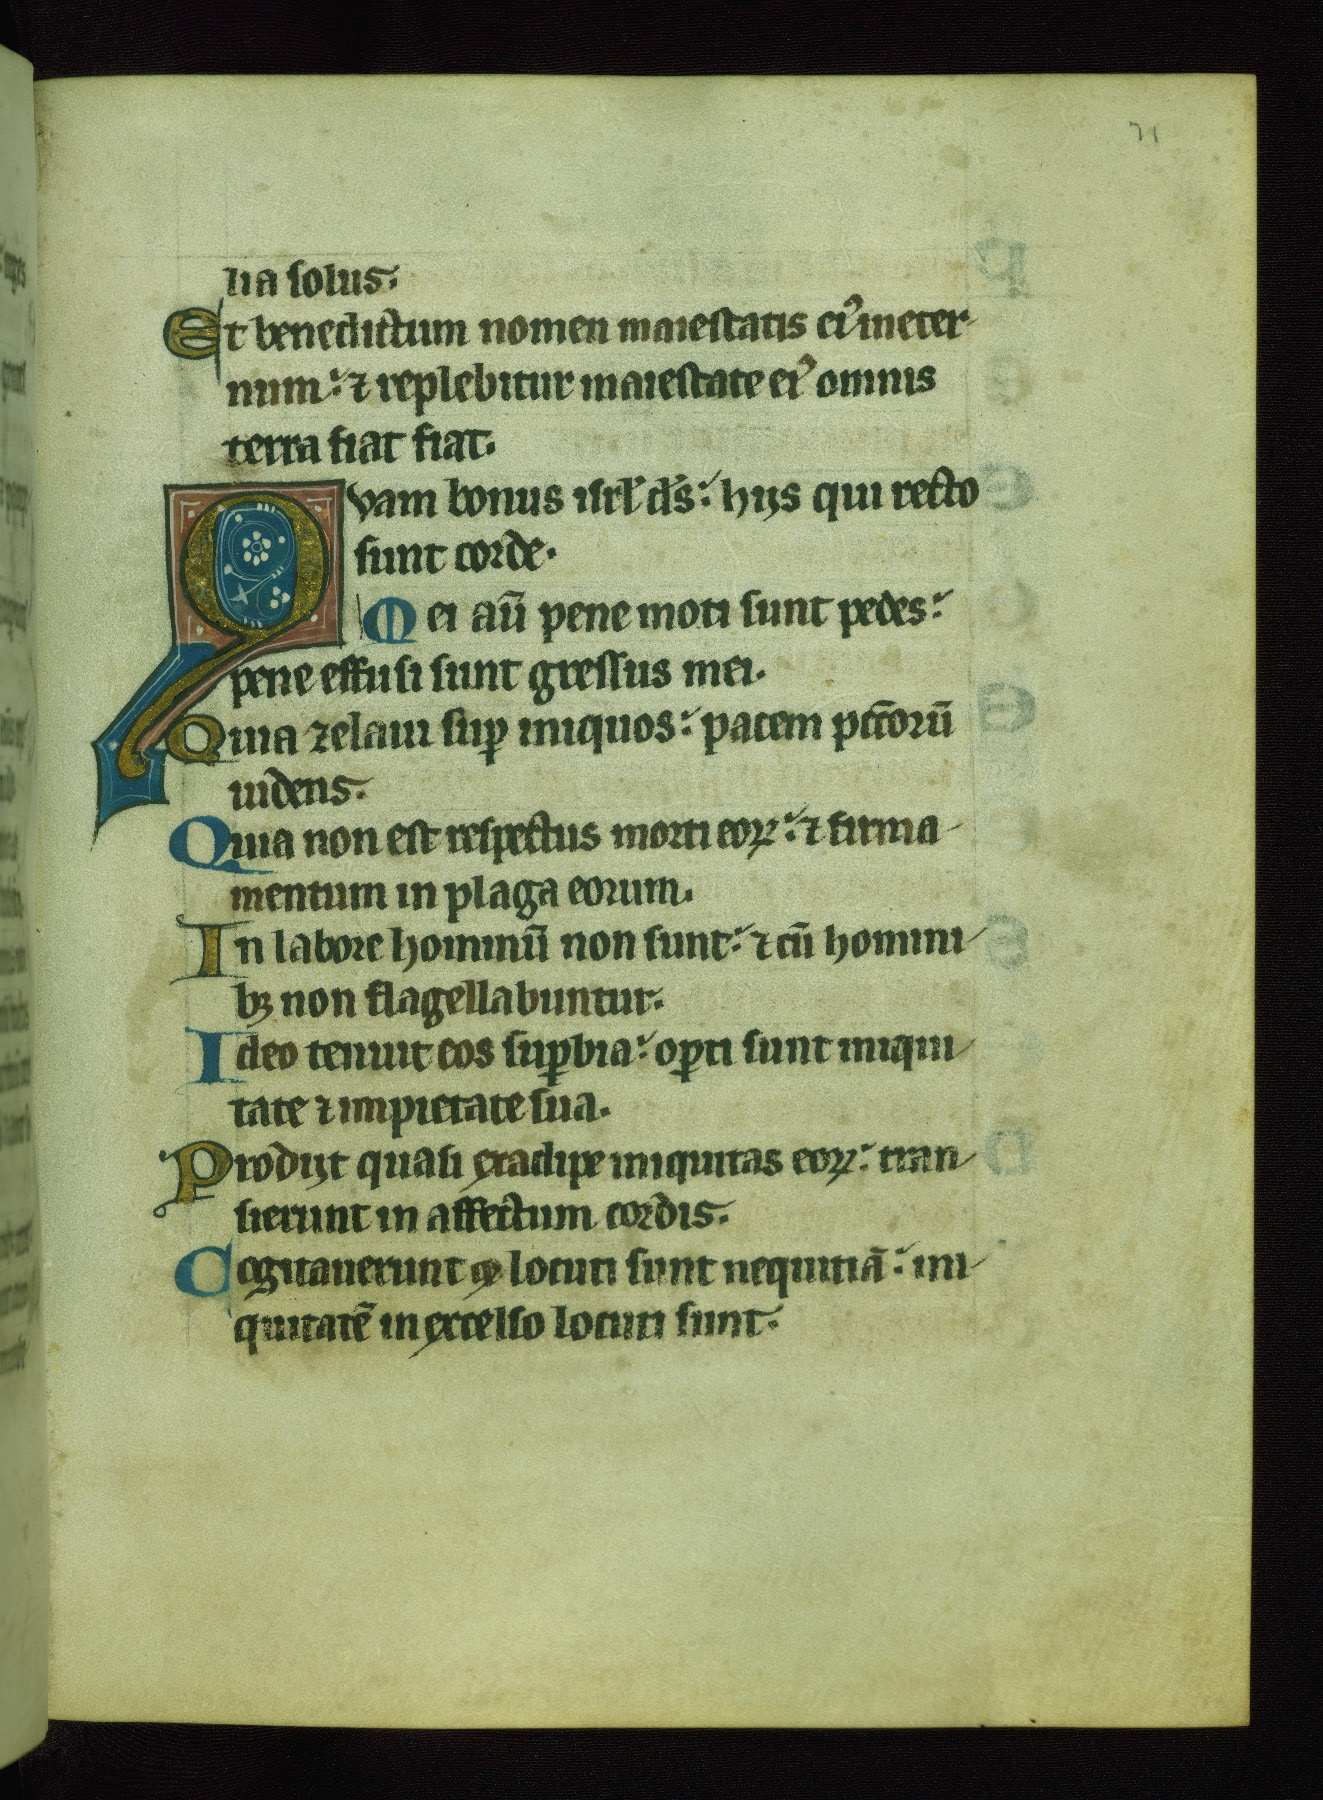 71
lia solus.
Et benedictum nomen maiestatis eiꝰ ineter
num: ⁊ replebitur maiestate eiꝰ omnis
terra fiat fiat.
Qvam bonus isrl̕ ds̄: hijs qui recto
sunt corde.
Mei aūt pene moti sunt pedes:
pene effusi sunt gressus mei.
Quia zelaui suꝑ iniquos: pacem pctōrū
uidens.
Quia non est respectus morti eoꝝ: ⁊ firma
mentum in plaga eorum.
In labore hominū non sunt: ⁊ cū homini
bꝫ non flagellabuntur.
Ideo tenuit eos suꝑbia: oꝑti sunt iniqui
tate ⁊ impietate sua.
Prodijt quasi exadipe iniquitas eoꝝ: tran
sierunt in affectum cordis.
Cogitauerunt ⁊ locuti sunt nequitiā: ini
quitatē in excelso locuti sunt.